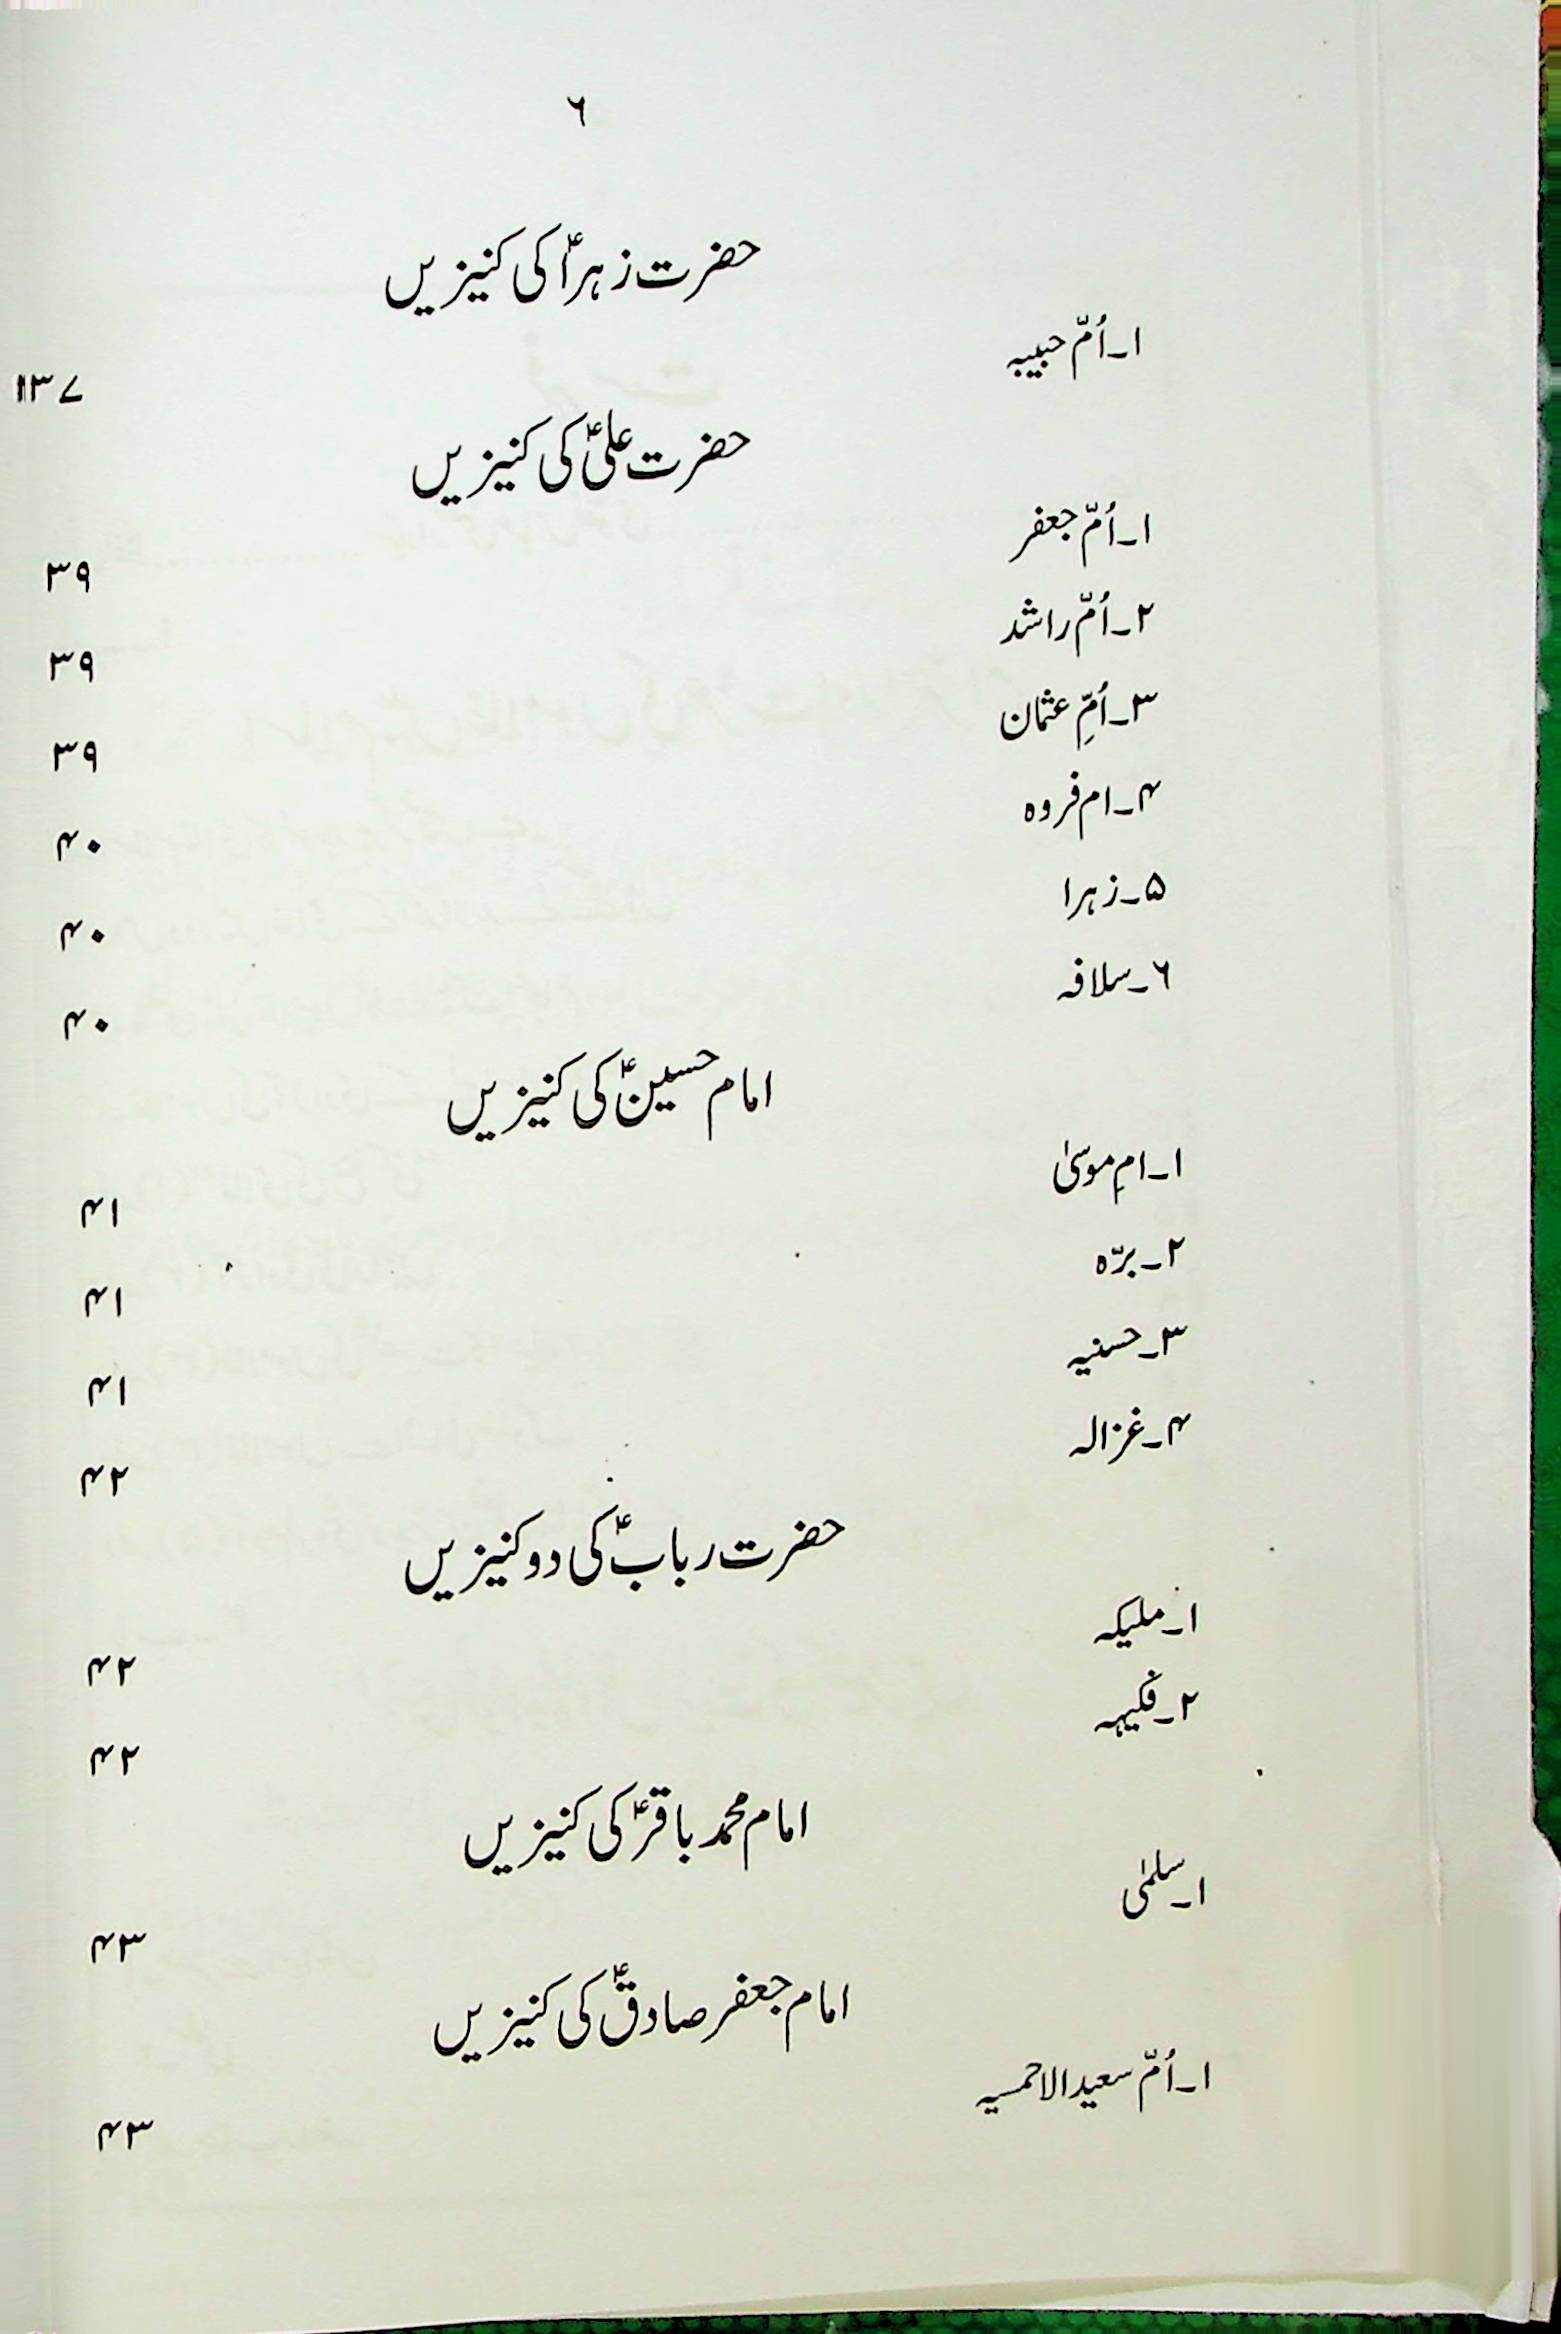 ۶
حضرت زہراؑ کی کنیزیں
۱۔اُمّ حبیبہ
۱۳۷
حضرت علیؑ کی کنیزیں
۱۔اُمّ جعفر
۳۹
۲۔اُمّ راشد
۳۹
۳۔اُمِّ عثمان
۳۹
۴۔ام فروہ
۴۰
۵۔زہرا
۴۰
۶۔سلافہ
۴۰
امام حسینؑ کی کنیزیں
۱۔امِ موسیٰ
۴۱
۲۔برّہ
۴۱
۳۔حسنیہ
۴۱
۴۔غزالہ
۴۲
حضرت ربابؑ کی دو کنیزیں
۱۔ملیکہ
۴۲
۲۔فکیہہ
۴۲
امام محمد باقرؑ کی کنیزیں
۱۔سلمٰی
۴۳
امام جعفر صادقؑ کی کنیزیں
۱۔اُمّ سعید الاحمسیہ
۴۳